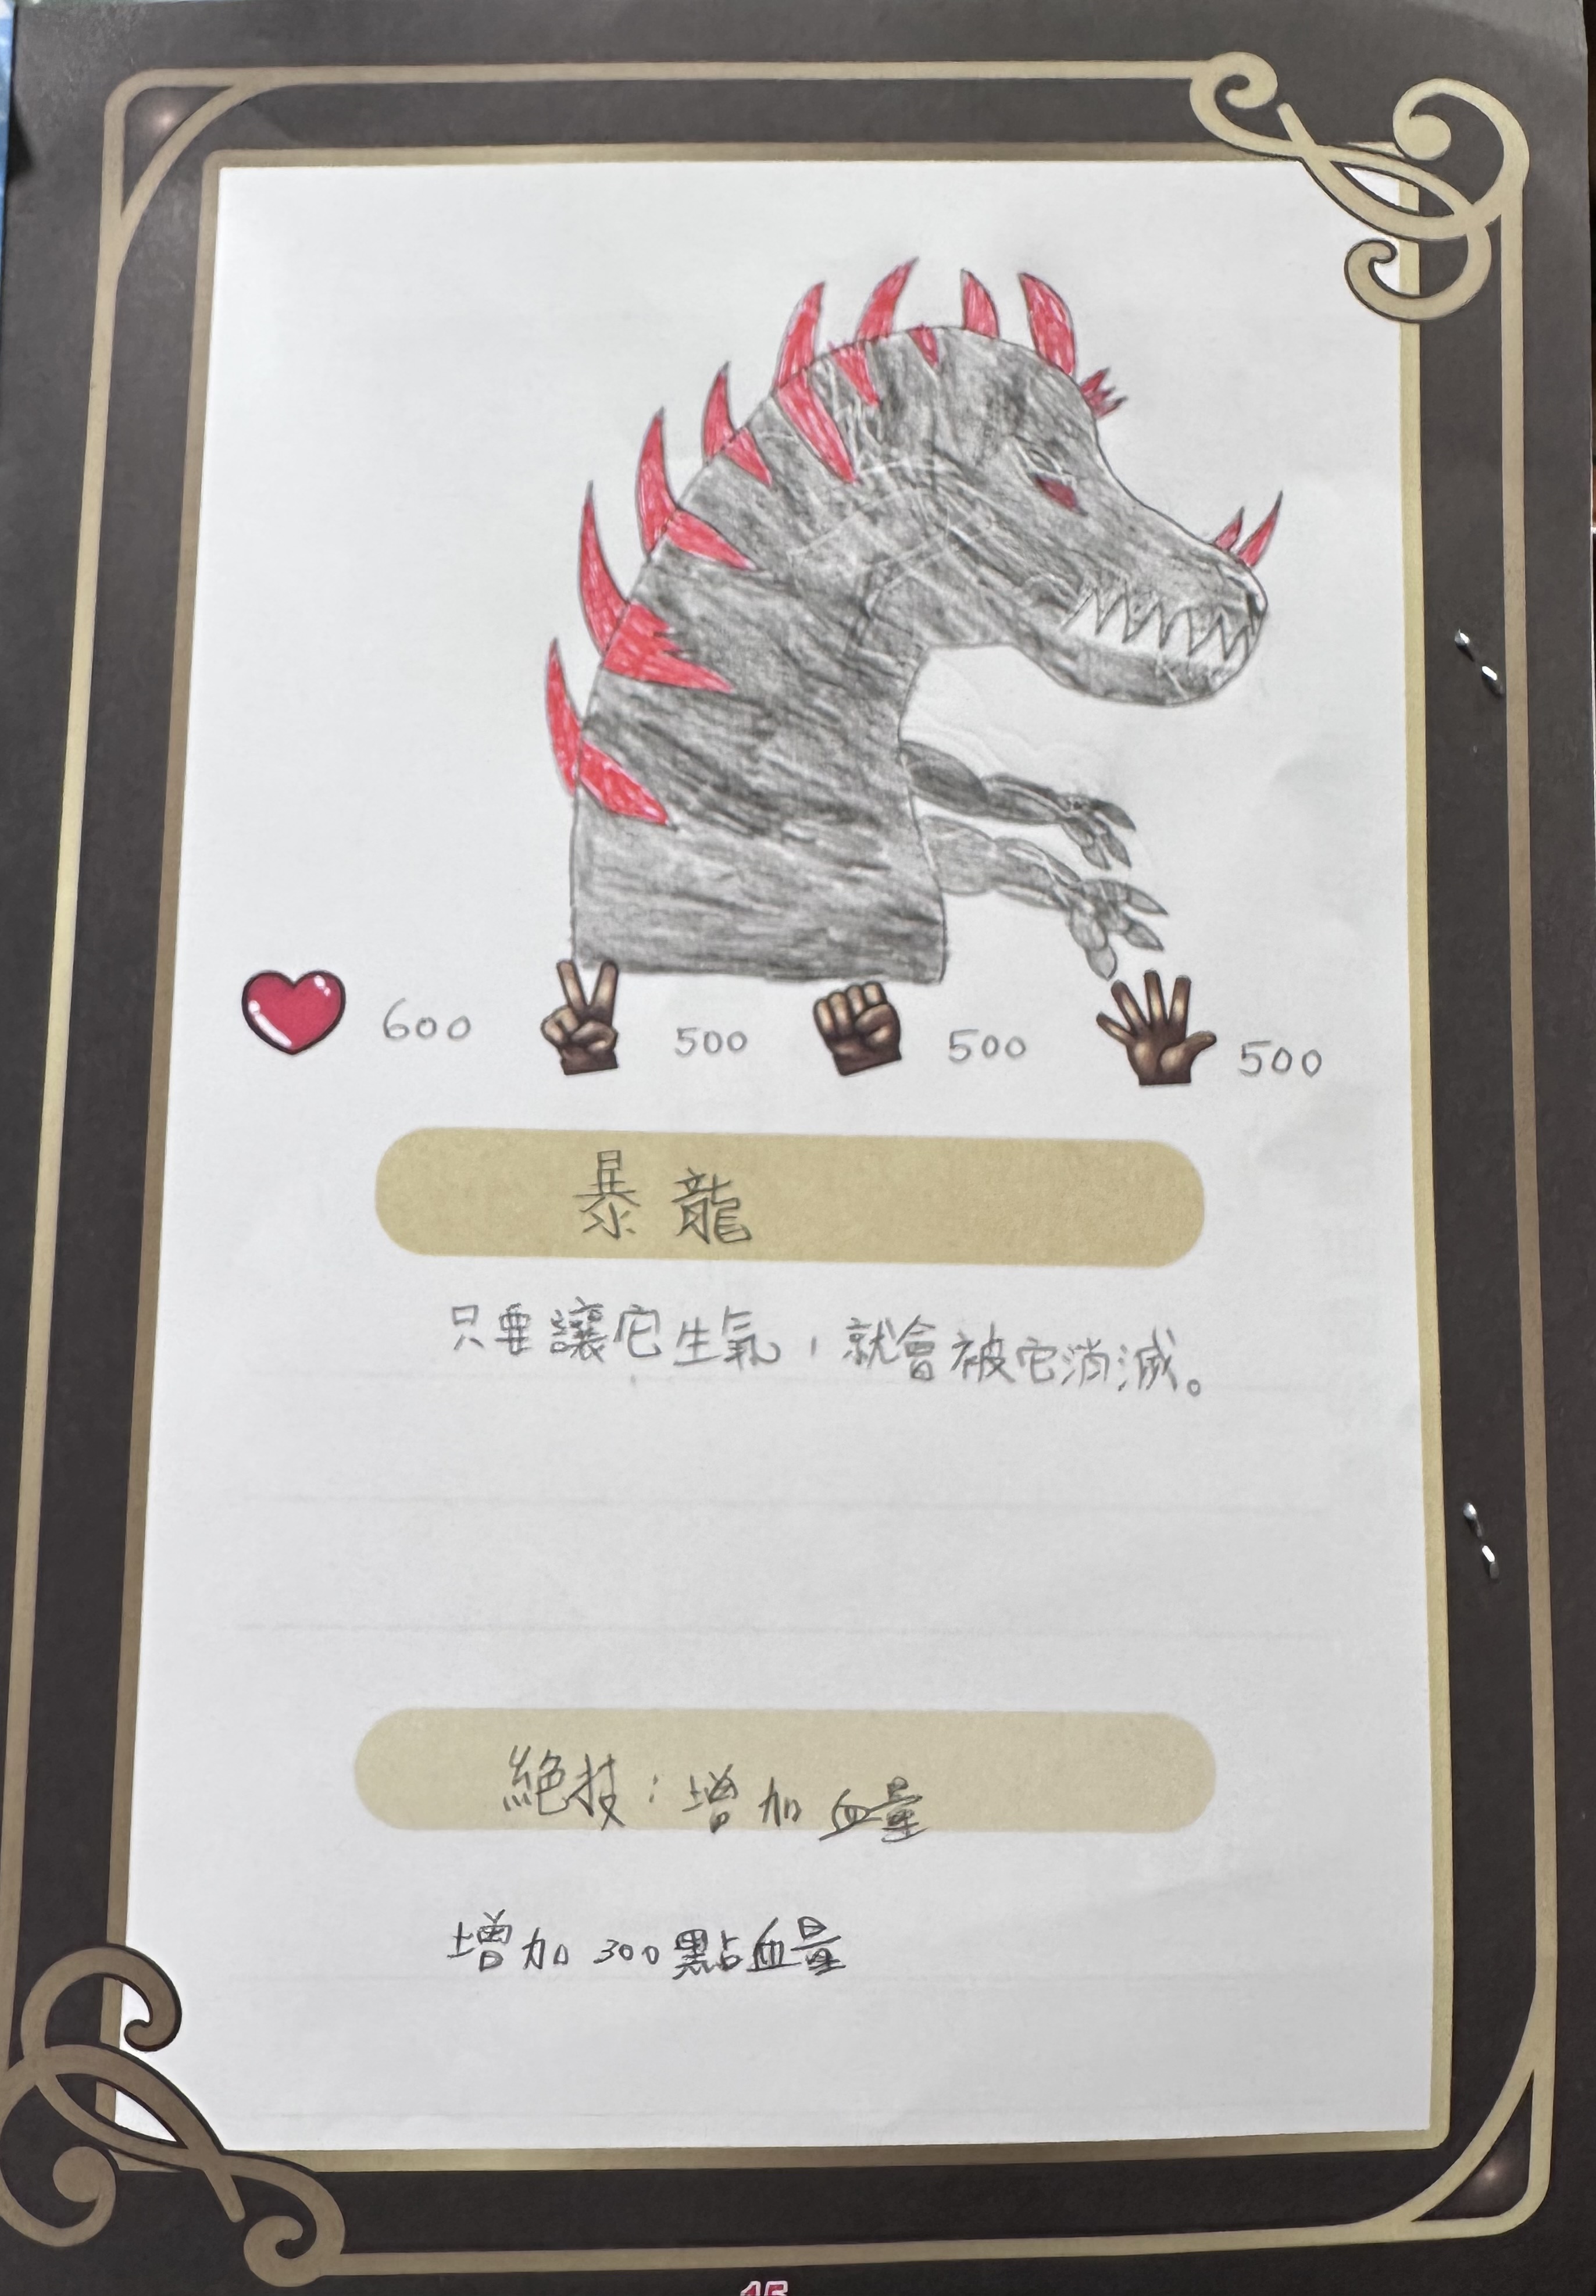 600 500 500 500
暴龍
只要讓它生氣，就會被它消滅。
絕技：增加血量
增加300點血量
15